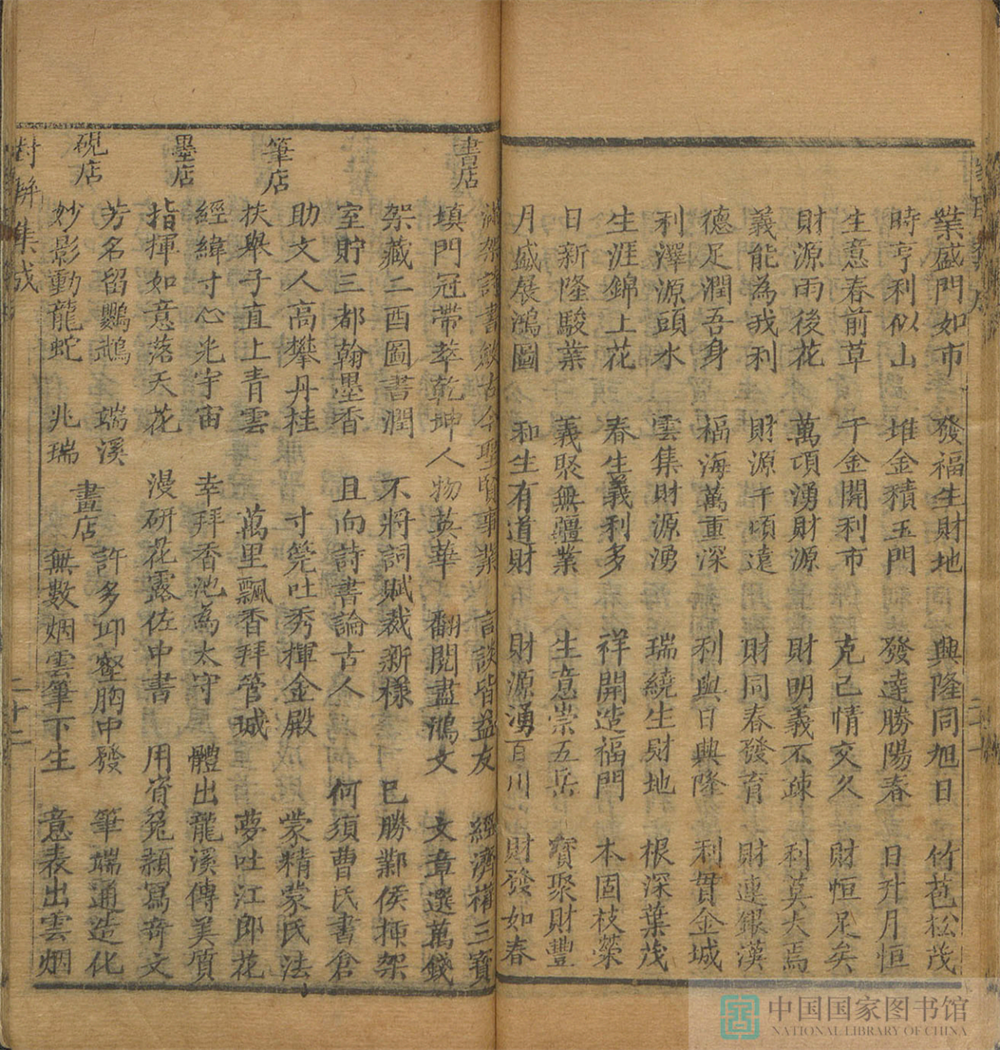 業盛門如市　發福生財地　興隆同旭日　竹苞松茂
時亨利似山　堆金積玉門　發達勝陽春　日升月恒
生意春前草　千金開利市　克己情交久　財恒足矣
財源雨後花　萬頃湧財源　財明義不疎　利莫大焉
義能為我利　財源千頃遠　財同春發育　財連銀漢
德足潤吾身　福海萬重深　利與日興隆　利貫金城
利澤源頭水　雲集財源湧　瑞繞生財地　根深葉茂
生涯錦上花　春生義利多　祥開造福門　本固枝榮
日新隆駿業　義聚無疆業　生意崇五岳　寶聚財豐
月盛展鴻圖　和生有道財　財源湧百川　財發如春
二十一
書店
滿架詩書斂古今聖賢事業　言談皆益友　經濟權三寶
填門冠帶萃乾坤人物英華　翻閱盡鴻文　文章選萬錢
架藏二酉圖書潤　不將詞賦裁新樣　已勝鄴侯揷架
室貯三都翰墨香　且向詩書論古人　何須曹氏書倉
筆店
助文人高攀丹桂　寸筦吐秀揮金殿　蒙精蒙氏法
扶舉子直上青雲　萬里飄香拜管城　夢吐江郎花
墨店
經緯寸心光宇宙　幸拜香池為太守　體出龍溪傳美質
指揮如意落天花　漫研花露佐中書　用宵兔穎寫奇文
硯店
芳名留鸚鵡　端溪
妙影動龍蛇　兆瑞
畫店
許多邱壑胸中發　筆端通造化
無數烟雲筆下生　意表出雲烟
對聯集成
二十二
中国国家图书馆
NATIONAL LIBRARY OF CHINA